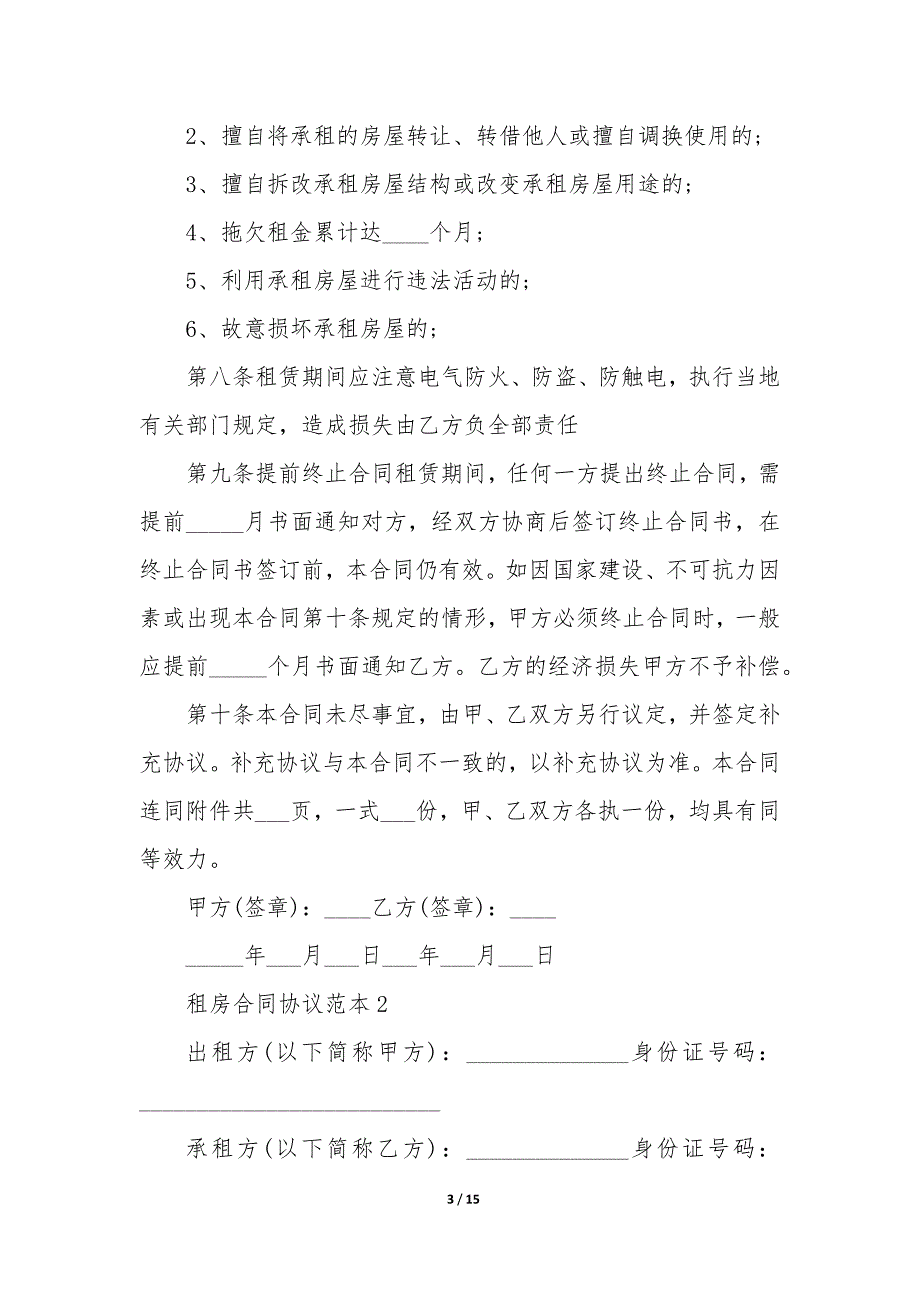 2、擅自将承租的房屋转让、转借他人或擅自调换使用的;
3、擅自拆改承租房屋结构或改变承租房屋用途的;
4、拖欠租金累计达____个月;
5、利用承租房屋进行违法活动的;
6、故意损坏承租房屋的;
第八条租赁期间应注意电气防火、防盗、防触电，执行当地
有关部门规定，造成损失由乙方负全部责任
第九条提前终止合同租赁期间，任何一方提出终止合同，需
提前_____月书面通知对方，经双方协商后签订终止合同书，在
终止合同书签订前，本合同仍有效。如因国家建设、不可抗力因
素或出现本合同第十条规定的情形，甲方必须终止合同时，一般
应提前_____个月书面通知乙方。乙方的经济损失甲方不予补偿。
第十条本合同未尽事宜，由甲、乙双方另行议定，并签定补
充协议。补充协议与本合同不一致的，以补充协议为准。本合同
连同附件共___页，一式___份，甲、乙双方各执一份，均具有同
等效力。
甲方(签章)：____乙方(签章)：____
_____年___月___日___年___月___日
租房合同协议范本2
出租方(以下简称甲方)：______________身份证号码：
__________________________
承租方(以下简称乙方)：______________身份证号码：
3 / 15